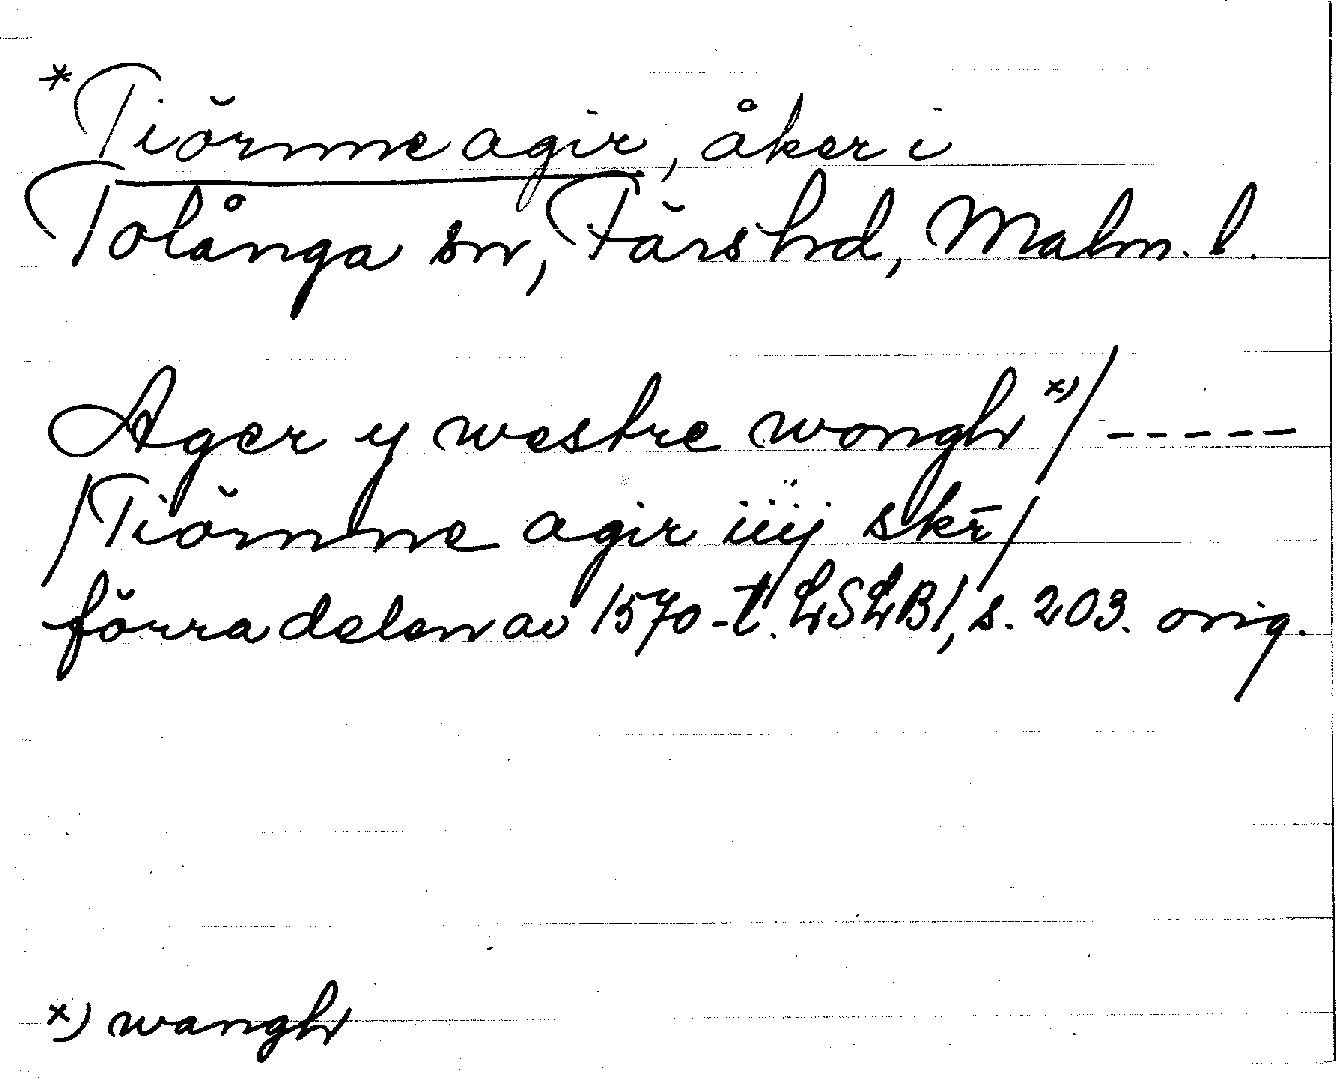 *Tiörnne agir, åker i
Tolånga sn, Färs hd, Malm. l.
Ager y westre wongh *)/-----
/Tiörnne agir iiij skr̄/
förra delen av 1570-t. LSLB1, s. 203. orig.
*) wangh